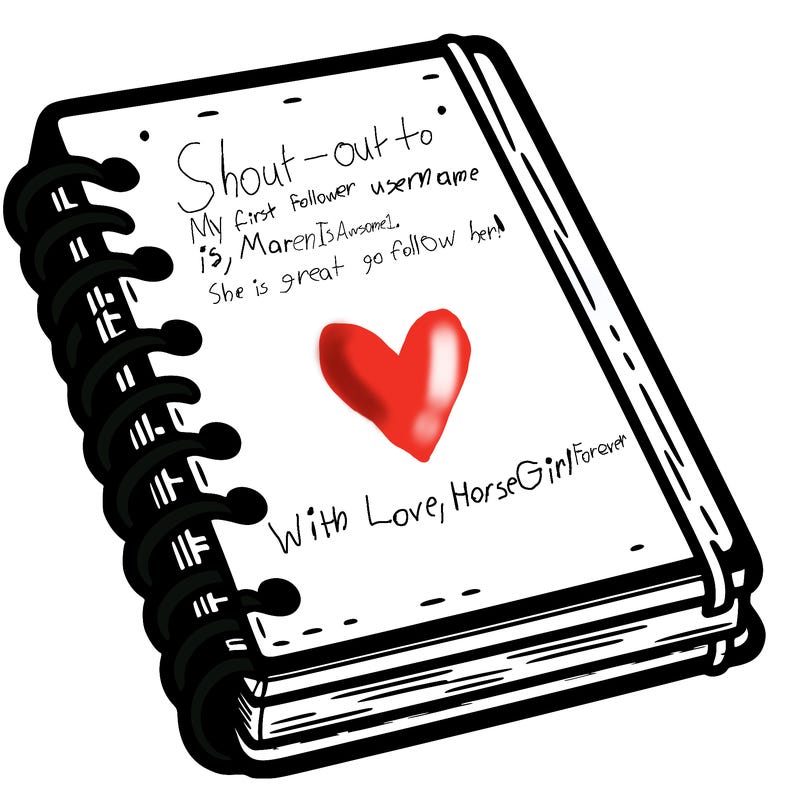 Shout-out to
My first follower username
is, MarenIsAwsome1.
She is great go follow her!
With Love, HorseGirlForever